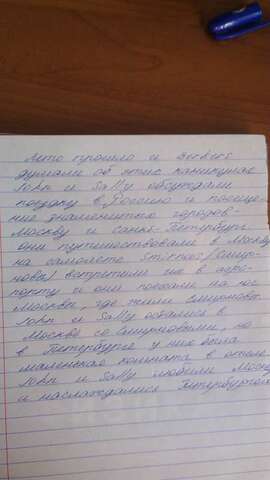 Лето прошло и Berkers
думали об этих каникулах
John и Sally обсуждали
поездку в Россию и посеще-
ние знаменитых городов -
Москву и Санкт-Петербург
они путешествовали в Москву
на самолёте Smirnovs/Смир-
новы/ встретили их в аэро-
порту и они поехали на юг
Москвы, где жили Смирновы.
John и Sally остались в
Москве со Смирновыми, но
в Петербурге у них была
маленькая комната в отеле
John и Sally любили Москву
и наслаждались Петербургом